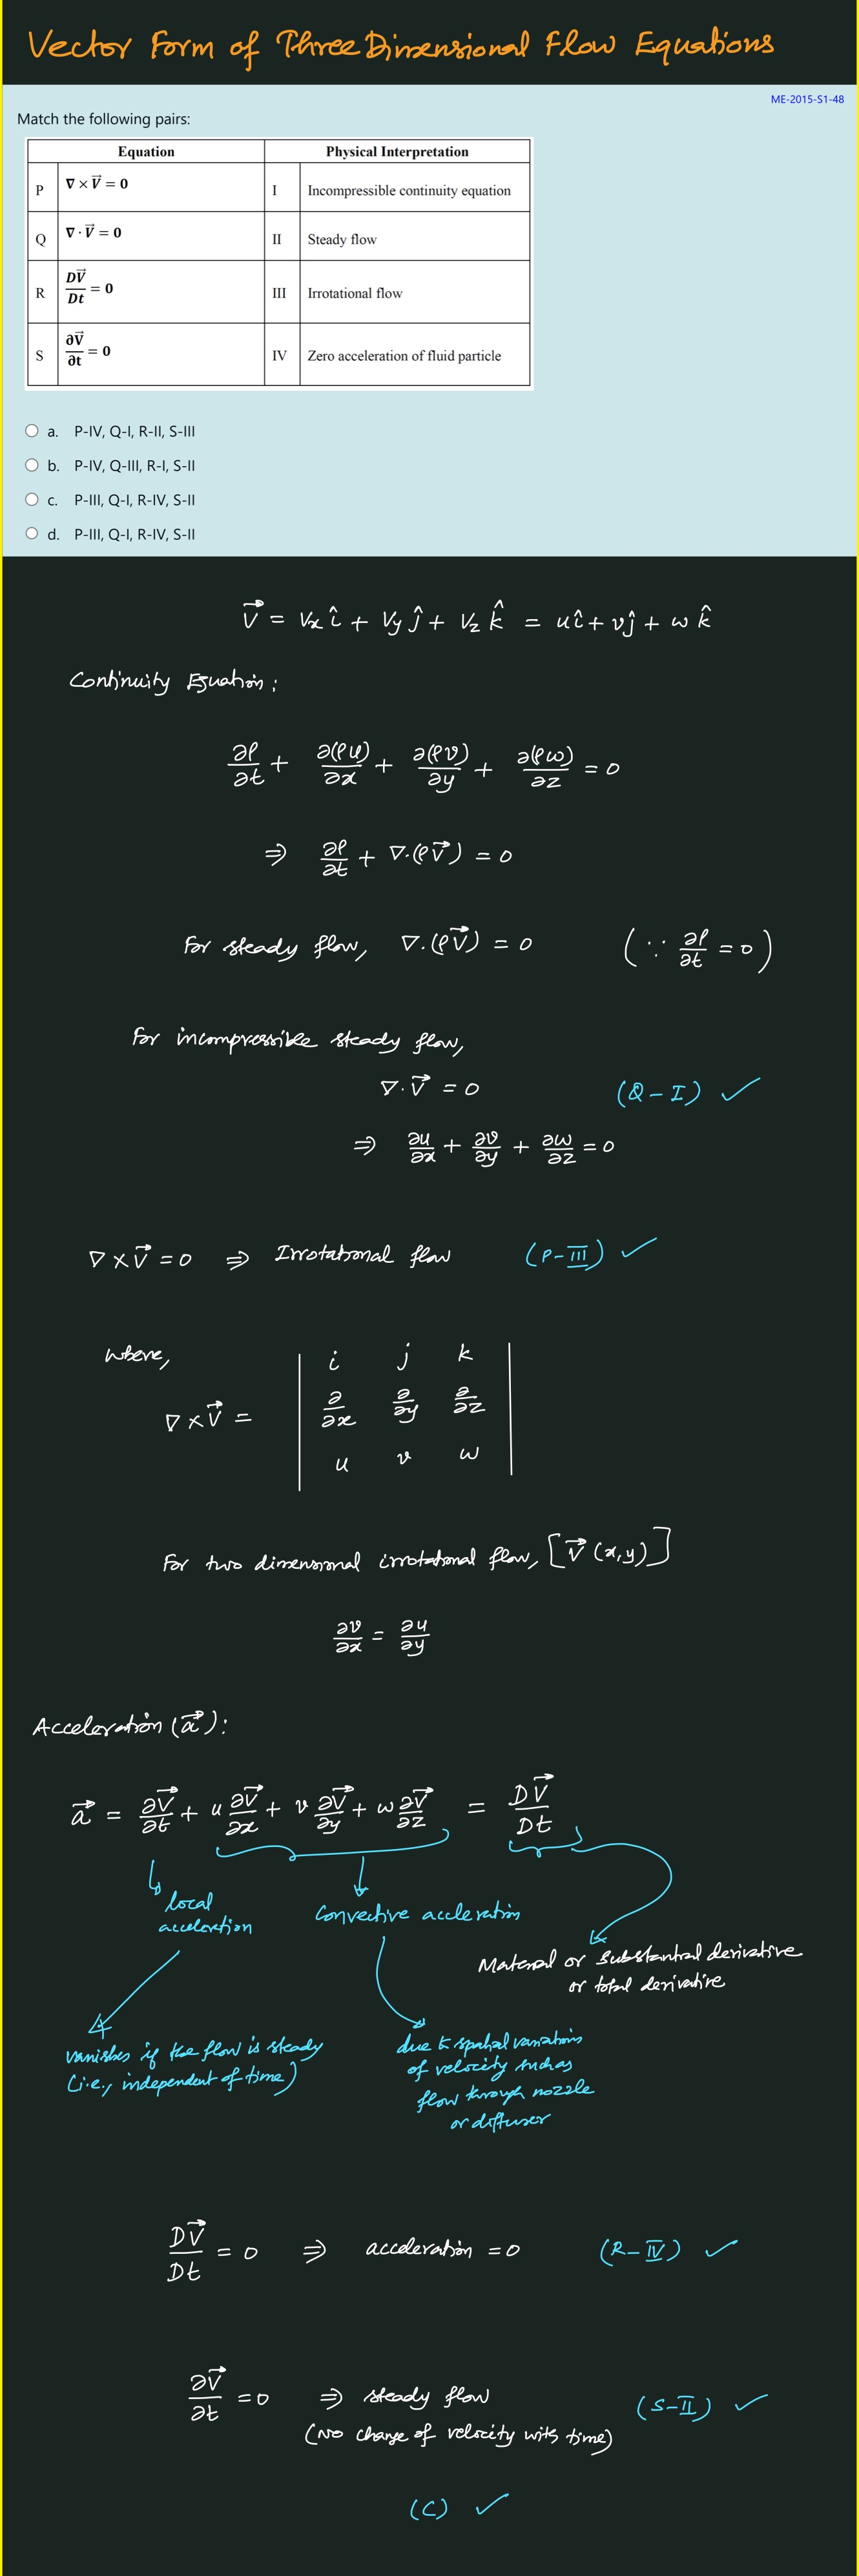 Vector Form of Three Dimensional Flow Equations
ME-2015-S1-48
Match the following pairs:
Equation Physical Interpretation
P ∇ × V⃗ = 0 I Incompressible continuity equation
Q ∇ · V⃗ = 0 II Steady flow
R DV⃗/Dt = 0 III Irrotational flow
S ∂V⃗/∂t = 0 IV Zero acceleration of fluid particle
a. P-IV, Q-I, R-II, S-III
b. P-IV, Q-III, R-I, S-II
c. P-III, Q-I, R-IV, S-II
d. P-III, Q-I, R-IV, S-II
V⃗ = Vx î + Vy ĵ + Vz k̂ = u î + v ĵ + w k̂
Continuity Equation:
∂ρ/∂t + ∂(ρu)/∂x + ∂(ρv)/∂y + ∂(ρw)/∂z = 0
⇒ ∂ρ/∂t + ∇.(ρV⃗) = 0
For steady flow, ∇.(ρV⃗) = 0 (∵ ∂ρ/∂t = 0)
For incompressible steady flow,
∇.V⃗ = 0 (Q-I) ✓
⇒ ∂u/∂x + ∂v/∂y + ∂w/∂z = 0
∇ × V⃗ = 0 ⇒ Irrotational flow (P-III) ✓
where,
∇ × V⃗ = | i j k |
| ∂/∂x ∂/∂y ∂/∂z |
| u v w |
For two dimensional irrotational flow, [V⃗ (x,y)]
∂v/∂x = ∂u/∂y
Acceleration (a⃗):
a⃗ = ∂V⃗/∂t + u ∂V⃗/∂x + v ∂V⃗/∂y + w ∂V⃗/∂z = DV⃗/Dt
local
acceleration
Convective acceleration
Material or Substantial derivative
or total derivative
vanishes if the flow is steady
(i.e., independent of time)
due to spatial variations
of velocity such as
flow through nozzle
or diffuser
DV⃗/Dt = 0 ⇒ acceleration = 0 (R-IV) ✓
∂V⃗/∂t = 0 ⇒ steady flow (S-II) ✓
(No change of velocity with time)
(C) ✓